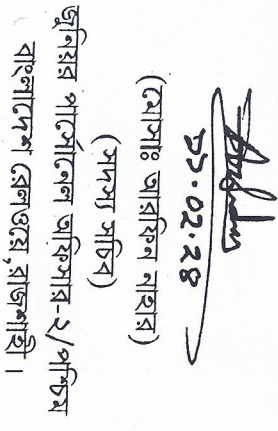 ১১.০২.২৪
(মোসাঃ আরফিন নাহার)
(সদস্য সচিব)
জুনিয়র পার্সোনেল অফিসার-২/পশ্চিম
বাংলাদেশ রেলওয়ে, রাজশাহী।